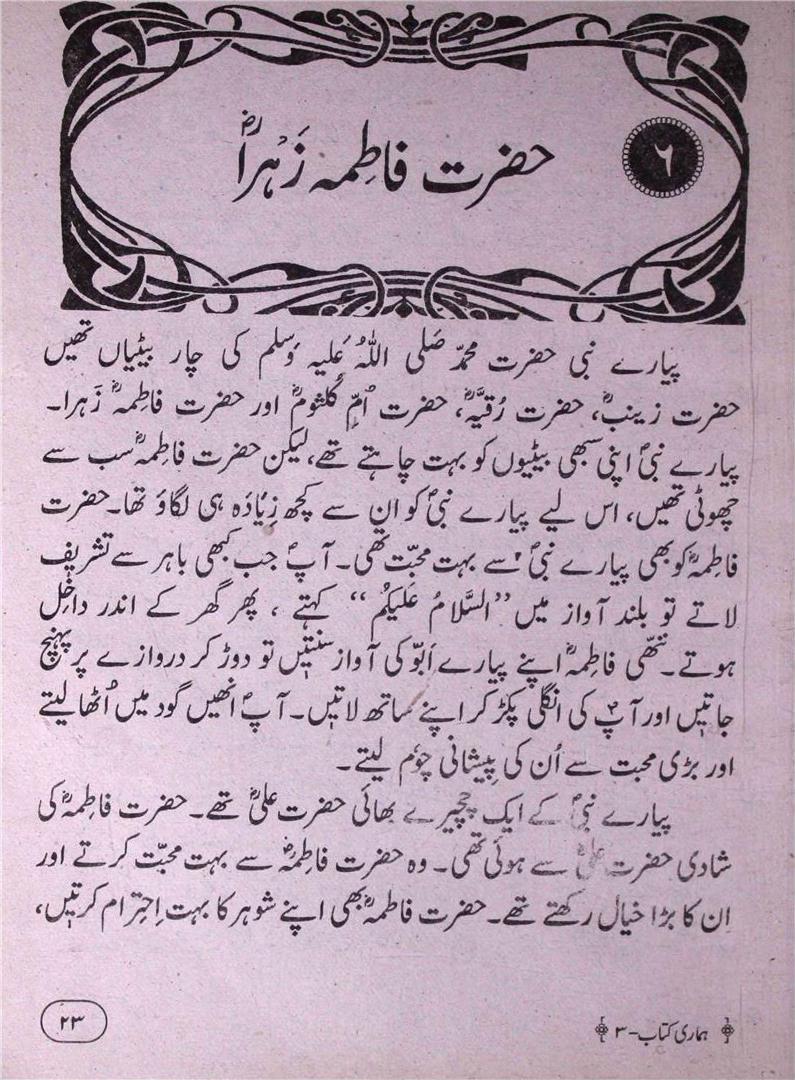 ۶
حضرت فاطِمہ زَہراؓ
پیارے نبی حضرت محمدّ صَلی اللہُ عَلیہ وَسلم کی چار بیٹیاں تھیں
حضرت زینبؓ، حضرت رُقیَّہؓ، حضرت اُمِّ کُلثومؓ اور حضرت فاطِمہؓ زَہرا۔
پیارے نبیؐ اپنی سبھی بیٹیوں کو بہت چاہتے تھے، لیکن حضرت فاطمہؓ سب سے
چھوٹی تھیں، اس لیے پیارے نبیؐ کو ان سے کچھ زِیادَہ ہی لگاؤ تھا۔ حضرت
فاطمہؓ کو بھی پیارے نبیؐ سے بہت محبّت تھی۔ آپؐ جب کبھی باہر سے تشریف
لاتے تو بلند آواز میں ”السَّلامُ عَلیکُم“ کہتے، پھر گھر کے اندر داخِل
ہوتے۔ ننھّی فاطِمہؓ اپنے پیارے اَبّو کی آواز سنتیں تو دوڑ کر دروازے پر پہنچ
جاتیں اور آپؐ کی انگلی پکڑ کر اپنے ساتھ لاتیں۔ آپؐ انھیں گود میں اُٹھا لیتے
اور بڑی محبت سے اُن کی پیشانی چوٗم لیتے۔
پیارے نبیؐ کے ایک چچیرے بھائی حضرت علیؓ تھے۔ حضرت فاطِمہؓ کی
شادی حضرت علیؓ سے ہوئی تھی۔ وہ حضرت فاطِمہؓ سے بہت محبّت کرتے اور
ان کا بڑا خیال رکھتے تھے۔ حضرت فاطمہؓ بھی اپنے شوہر کا بہت اِحتِرام کرتیں،
ہماری کتاب-۳
۲۳